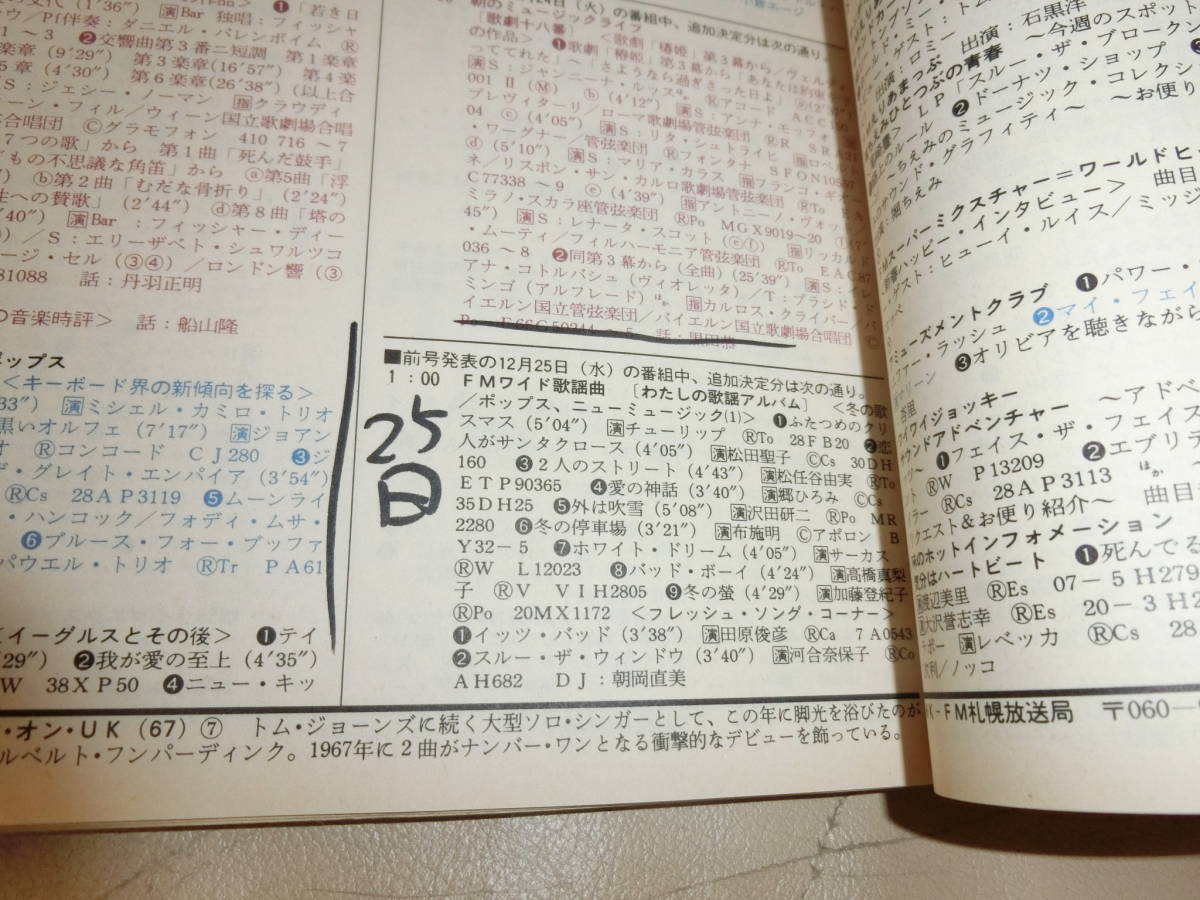 の交代（1′36″） 演Bar 独唱：フィッシャ
ウ／P伴奏：ダニエル・バレンボイム Ⓡ
1～3 ❷交響曲第3番ニ短調 第1楽章
楽章（9′29″） 第3楽章（16′57″） 第4楽
5章（4′30″） 第6楽章（26′38″）（以上合
S：ジェシー・ノーマン 指クラウディ
ィーン・フィル／ウィーン国立歌劇場合唱
合唱団 Ⓒグラモフォン 410 716～7
7つの歌」から 第1曲「死んだ鼓手」
もの不思議な角笛」から ⓐ第5曲「浮
ⓑ第2曲「むだな骨折り」（2′24″）
生への賛歌」（2′44″） ⓓ第8曲「塔の
40″） 演Bar：フィッシャー・ディー
／S：エリーザベト・シュワルツコ
ージ・セル（③④）／ロンドン響（③
81088 話：丹羽正明
の音楽時評＞ 話：船山隆
ポップス
＜キーボード界の新傾向を探る＞
33″） 演ミシェル・カミロ・トリオ
黒いオルフェ（7′17″） 演ジョアン
オ Ⓡコンコード CJ280 ❸ジ
ザ・グレイト・エンパイア（3′54″）
ⓇCs 28AP3119 ❺ムーンライ
・ハンコック／フォディ・ムサ・
❻ブルース・フォー・ブッファ
パウエル・トリオ ⓇTr PA61
＜イーグルスとその後＞ ❶テイ
29″） ❷我が愛の至上（4′35″）
W 38XP50 ❹ニュー・キッ
24日（火）の番組中、追加決定分は次の通り。
朝のミュージックライフ
［歌劇十八番］ ＜歌劇「椿姫」第3幕から／ヴェル
の作品＞ ❶歌劇「椿姫」第3幕から「あなたは約束
ってくれた」～「さようなら過ぎさった日よ」
演S：ジャンニーナ・ルッス Ⓡアコード ACC150
001 Ⅱ（M） ⓑ（4′12″） 演S：アンナ・モッフォ
プレヴィターリ／ローマ歌劇場管弦楽団 ⓇR SRA
04 ⓒ（4′05″） 演S：リタ・シュトライヒ 指
・ワーグナー／管弦楽団 Ⓡフォンタナ SFON10567
ⓓ（5′10″） 演S：マリア・カラス 指フランコ・ギオ
ネ／リスボン・サン・カルロ歌劇場管弦楽団 ⓇTo EA
C77338～9 ⓔ（4′39″） 指アントニーノ・ヴォット
ミラノ・スカラ座管弦楽団 ⓇPo MGX9019～20 ⓕ（7′
45″） 演S：レナータ・スコット（ⓔⓕ） 指リッカルド
・ムーティ／フィルハーモニア管弦楽団 ⓇTo EAC87
036～8 ❷同第3幕から（全曲）（25′39″） 演S：イレ
アナ・コトルバシュ（ヴィオレッタ）／T：プラシド・ド
ミンゴ（アルフレード）ほか 指カルロス・クライバー／バ
イエルン国立管弦楽団／バイエルン国立歌劇場合唱団 Ⓒ
Po F66G50344～5 話：黒田恭一
25日
■前号発表の12月25日（水）の番組中、追加決定分は次の通り。
1：00 FMワイド歌謡曲 ［わたしの歌謡アルバム］ ＜冬の歌
／ポップス、ニューミュージック(1)＞ ❶ふたつめのクリ
スマス（5′04″） 演チューリップ ⓇTo 28FB20 ❷恋
人がサンタクロース（4′05″） 演松田聖子 ⒸCs 30DH
160 ❸2人のストリート（4′43″） 演松任谷由実 ⓇTo
ETP90365 ❹愛の神話（3′40″） 演郷ひろみ ⒸCs
35DH25 ❺外は吹雪（5′08″） 演沢田研二 ⓇPo MR
2280 ❻冬の停車場（3′21″） 演布施明 Ⓒアポロン B
Y32－5 ❼ホワイト・ドリーム（4′05″） 演サーカス
ⓇW L12023 ❽バッド・ボーイ（4′24″） 演高橋真梨
子 ⓇV VIH2805 ❾冬の螢（4′29″） 演加藤登紀子
ⓇPo 20MX1172 ＜フレッシュ・ソング・コーナー＞
❶イッツ・バッド（3′38″） 演田原俊彦 ⓇCa 7A0543
❷スルー・ザ・ウィンドウ（3′40″） 演河合奈保子 ⓇCo
AH682 DJ：朝岡直美
・オン・UK（67）⑦ トム・ジョーンズに続く大型ソロ・シンガーとして、この年に脚光を浴びたのが
ルベルト・フンパーディンク。1967年に2曲がナンバー・ワンとなる衝撃的なデビューを飾っている。
出演：石黒洋
えみひとつぶの青春 ～今週のスポット
LP「スルー・ザ・ブロークン
のルール ❷ドーナツ・ショップ ❸
～ちえみのミュージック・コレクシ
サウンド・グラフィティ～ ～お便り
演：堀ちえみ
スーパーミクスチャー＝ワールドヒ
新春ハッピー・インタビュー＞ 曲目
ゲスト：ヒューイ・ルイス／ミッジ
ミューズメントクラブ ❶パワー・
ファー・ラッシュ ❷マイ・フェイ
マリーン ❸オリビアを聴きながら
杏里
ワイワイジョッキー
ウンドアドベンチャー ～アドベ
❶フェイス・ザ・フェイス
ⓇW P13209 ❷エブリ
イラー ⓇCs 28AP3113 ほか
リクエスト＆お便り紹介～ 曲目
のホットインフォメーション
気分はハートビート ❶死んでる
演渡辺美里 ⓇEs 07－5H279
演大沢誉志幸 ⓇEs 20－3H2
テボー 演レベッカ ⓇCs 28
文利／ノッコ
K－FM札幌放送局 〒060－